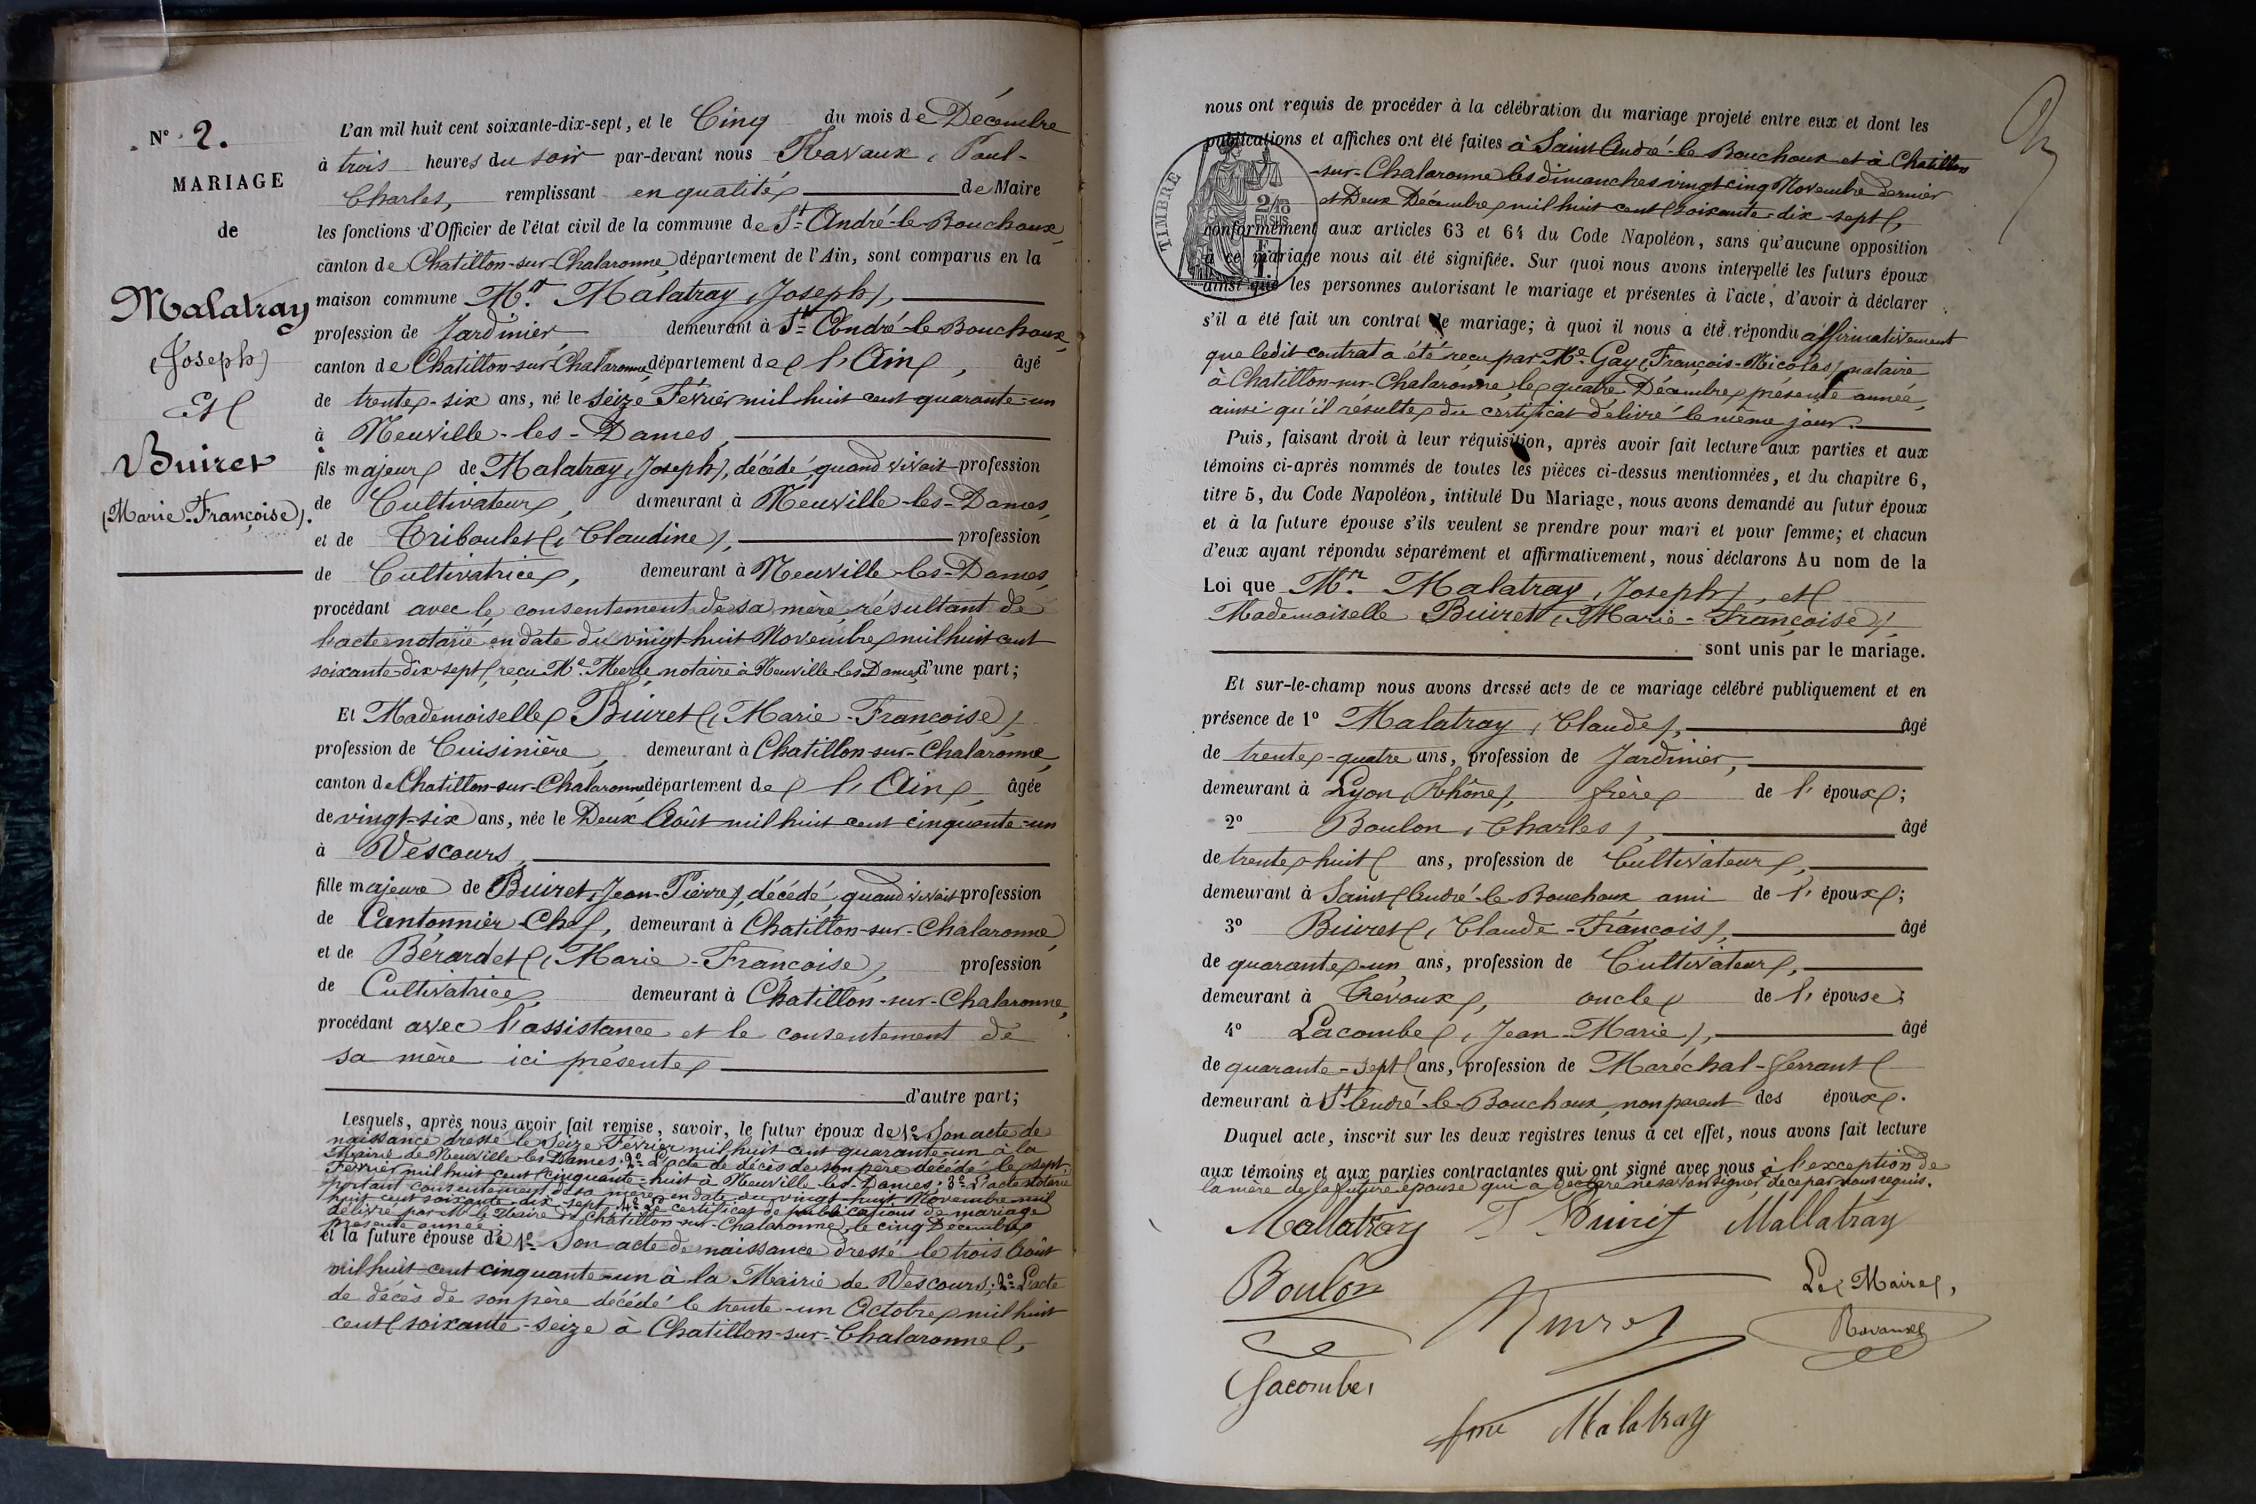 N° 2.
MARIAGE
de
Malatray
(Joseph)
Et
Buiret
(Marie-Françoise).
L'an mil huit cent soixante-dix-sept, et le Cinq du mois de Décembre
à trois heures du soir par-devant nous Ravaux, Paul-
Charles, remplissant en qualité de Maire
les fonctions d'Officier de l'état civil de la commune de St André-le-Bouchoux,
canton de Chatillon-sur-Chalaronne, département de l'Ain, sont comparus en la
maison commune Mr Malatray (Joseph),
profession de Jardinier demeurant à St André-le-Bouchoux,
canton de Chatillon-sur-Chalaronne, département de l'Ain, âgé
de trente-six ans, né le Seize Février mil huit cent quarante-un
à Neuville-les-Dames,
fils majeur de Malatray (Joseph), décédé, quand vivait profession
de Cultivateur, demeurant à Neuville-les-Dames,
et de Triboulet (Claudine), profession
de Cultivatrice, demeurant à Neuville-les-Dames,
procédant avec le consentement de sa mère, résultant de
l'acte notarié en date du vingt huit Novembre mil huit cent
soixante-dix-sept, reçu Me Merle, notaire à Neuville-les-Dames, d'une part;
Et Mademoiselle Buiret (Marie-Françoise),
profession de Cuisinière, demeurant à Chatillon-sur-Chalaronne,
canton de Chatillon-sur-Chalaronne, département de l'Ain, âgée
de vingt-six ans, née le Deux Août mil huit cent cinquante-un
à Vescours,
fille majeure de Buiret (Jean-Pierre), décédé, quand vivait profession
de Cantonnier-Chef, demeurant à Chatillon-sur-Chalaronne,
et de Bérardet (Marie-Françoise), profession
de Cultivatrice, demeurant à Chatillon-sur-Chalaronne,
procédant avec l'assistance et le consentement de
sa mère ici présente
d'autre part;
Lesquels, après nous avoir fait remise, savoir, le futur époux de 1° Son acte de
naissance dressé le Seize Février mil huit cent quarante-un à la
Mairie de Neuville-les-Dames; 2° L'acte de décès de son père décédé le sept
Février mil huit cent cinquante-huit à Neuville-les-Dames; 3° L'acte notarié
portant consentement de sa mère, en date du vingt-huit Novembre mil
huit cent soixante-dix-sept; 4° Le certificat de publications de mariage
délivré par Mr le Maire de Chatillon-sur-Chalaronne, le cinq Décembre
présente année;
et la future épouse de 1° Son acte de naissance dressé le trois Août
mil huit cent cinquante-un à la Mairie de Vescours; 2° L'acte
de décès de son père décédé le trente-un Octobre mil huit
cent soixante-seize à Chatillon-sur-Chalaronne,
nous ont requis de procéder à la célébration du mariage projeté entre eux et dont les
publications et affiches ont été faites à Saint André-le-Bouchoux et à Chatillon
-sur-Chalaronne les dimanches vingt cinq Novembre dernier
et Deux Décembre mil huit cent soixante-dix-sept,
TIMBRE
2/10
EN SUS
conformément aux articles 63 et 64 du Code Napoléon, sans qu'aucune opposition
à ce mariage nous ait été signifiée. Sur quoi nous avons interpellé les futurs époux
ainsi que les personnes autorisant le mariage et présentes à l'acte, d'avoir à déclarer
s'il a été fait un contrat de mariage; à quoi il nous a été répondu affirmativement
que ledit contrat a été reçu par Me Gay (François-Nicolas) notaire
à Chatillon-sur-Chalaronne, le quatre Décembre présente année,
ainsi qu'il résulte du certificat délivré le même jour.
Puis, faisant droit à leur réquisition, après avoir fait lecture aux parties et aux
témoins ci-après nommés de toutes les pièces ci-dessus mentionnées, et du chapitre 6,
titre 5, du Code Napoléon, intitulé Du Mariage, nous avons demandé au futur époux
et à la future épouse s'ils veulent se prendre pour mari et pour femme; et chacun
d'eux ayant répondu séparément et affirmativement, nous déclarons Au nom de la
Loi que Mr Malatray (Joseph), et
Mademoiselle Buiret (Marie-Françoise),
sont unis par le mariage.
Et sur-le-champ nous avons dressé acte de ce mariage célébré publiquement et en
présence de 1° Malatray (Claude), âgé
de trente-quatre ans, profession de Jardinier,
demeurant à Lyon (Rhône), frère de l'époux;
2° Boulon (Charles), âgé
de trente-huit ans, profession de Cultivateur,
demeurant à Saint André-le-Bouchoux ami de l'époux;
3° Buiret (Claude-François), âgé
de quarante-un ans, profession de Cultivateur,
demeurant à Trévoux, oncle de l'épouse;
4° Lacombe (Jean-Marie), âgé
de quarante-sept ans, profession de Maréchal-ferrant
demeurant à St André-le-Bouchoux, non parent des époux.
Duquel acte, inscrit sur les deux registres tenus à cet effet, nous avons fait lecture
aux témoins et aux parties contractantes qui ont signé avec nous à l'exception de
la mère de la future épouse qui a déclaré ne savoir signer, de ce par nous requis.
Mallatray F Buiret Mallatray
Boulon Buiret Le Maire,
Ravaux
Lacombe
Malatray